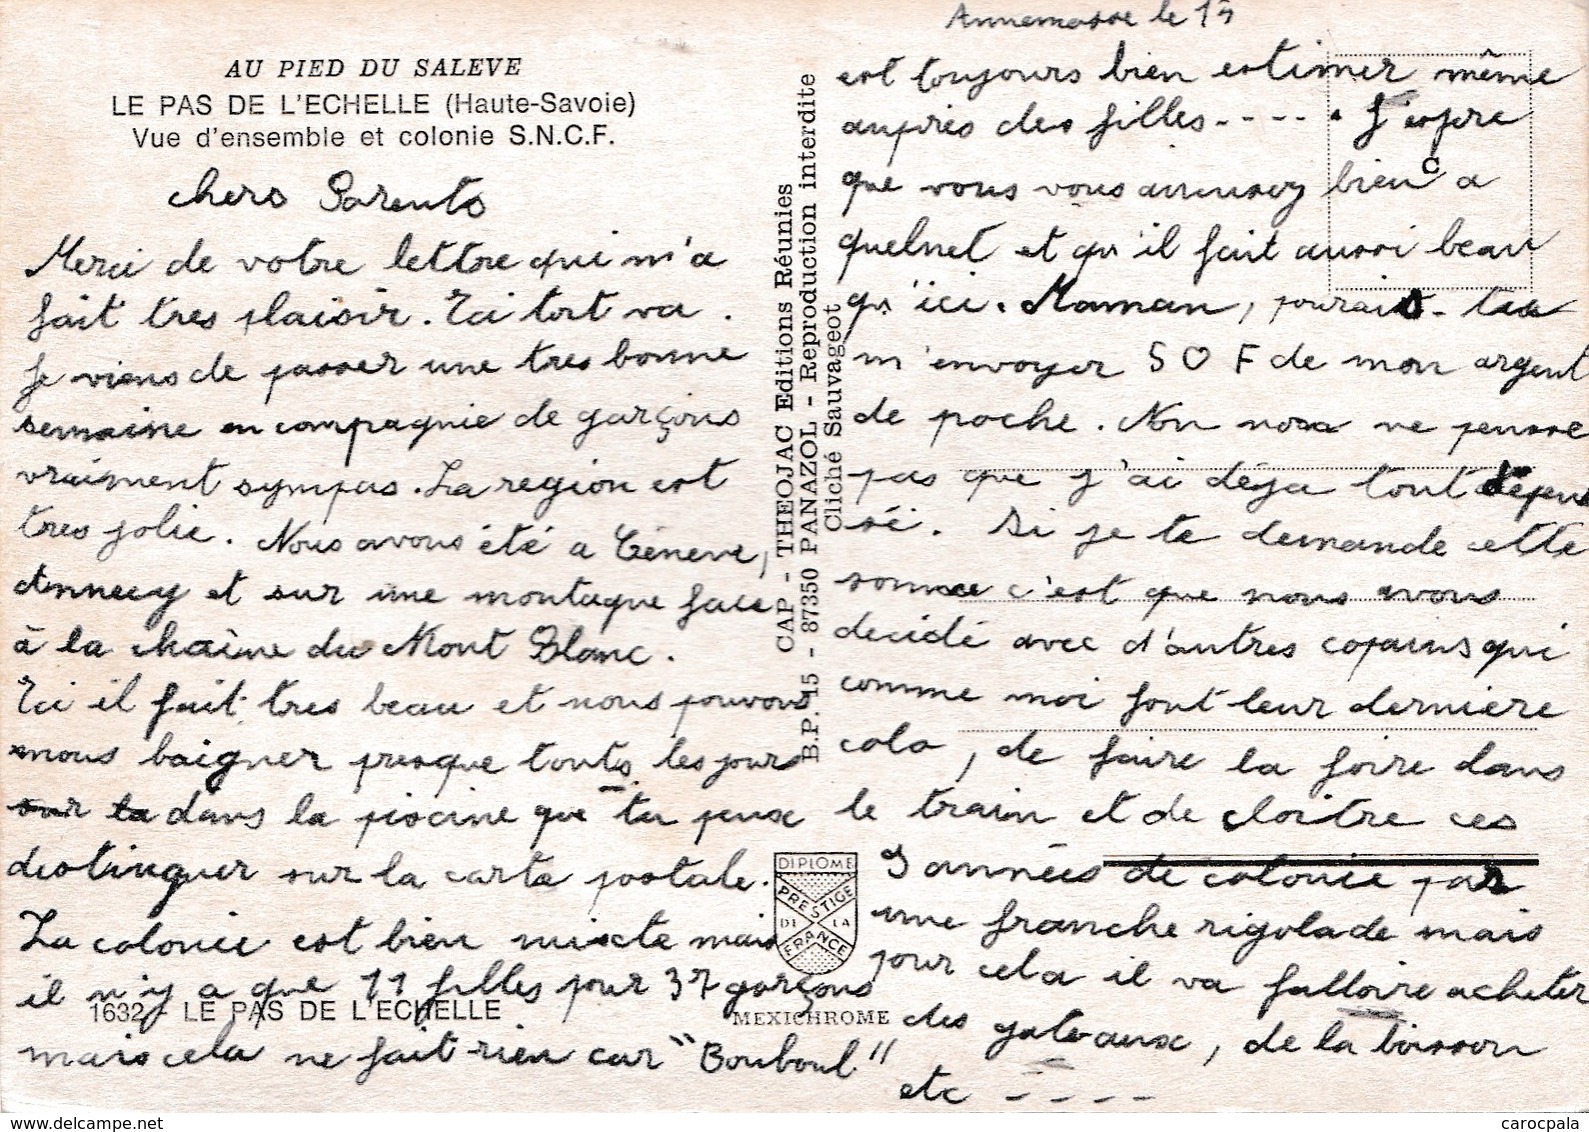 AU PIED DU SALEVE
LE PAS DE L'ECHELLE (Haute-Savoie)
Vue d'ensemble et colonie S.N.C.F.
chers Parents
Merci de votre lettre qui m'a
fait tres plaisir. Ici tout va.
Je viens de passer une tres bonne
semaine en compagnie de garçons
vraiment sympas. La region est
tres jolie. Nous avons été a Géneve,
Annecy et sur une montagne face
à la chaine du Mont Blanc.
Ici il fait tres beau et nous pouvons
nous baigner presque touts les jours
sur la dans la piscine que tu peux
distinguer sur la carte postale.
La colonie est bien mixte mais
il n'y a que 11 filles pour 37 garçons
mais cela ne fait rien car "Bouboul"
1632 - LE PAS DE L'ECHELLE
MEXICHROME
CAP - THEOJAC Editions Réunies
B.P. 15 - 87350 PANAZOL - Reproduction interdite
Cliché Sauvageot
DIPLOME
PRESTIGE
DE LA
FRANCE
C
Annemasse le 15
est toujours bien estimer même
auprès des filles----. J'espre
que vous vous amusez bien a
quelnet et qu'il fait aussi beau
qu'ici. Maman, pourais-tu
m'envoyer 50 F de mon argent
de poche. Non non ne pensse
pas que j'ai déja tout dépen
sé. Si je te demande cette
somme c'est que nous avons
decidé avec d'autres copains qui
comme moi font leur derniere
colo, de faire la foire dans
le train et de cloitre ces
9 années de colonie par
une franche rigolade mais
pour cela il va falloire acheter
des gateaux, de la boisson
etc ----
www.delcampe.net
carocpala